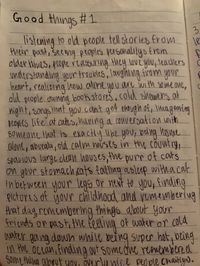 Good things #1
listening to old people tell stories from
their past, seeing peoples personalitys from
older movies, people reassuring they love you, teachers
understanding your troubles, laughing from your
heart, realizing how alone you are with someone,
old people owning bookstores, cold showers at
night, songs that you cant get enough of, imagening
peoples life at cafes, having a conversation with
someone that is exactly like you, being home
alone, avocado, old calm houses in the country,
spacious large clean houses, the purr of cats
on your stomach, cats falling asleep with a cat
in between your legs or next to you, finding
pictures of your childhood and remembering
that day, remembering things about your
friends or past, the feeling of water or cold
water going down while being super hot, being
in the ocean, finding out someone remembered
something about you, overly nice people